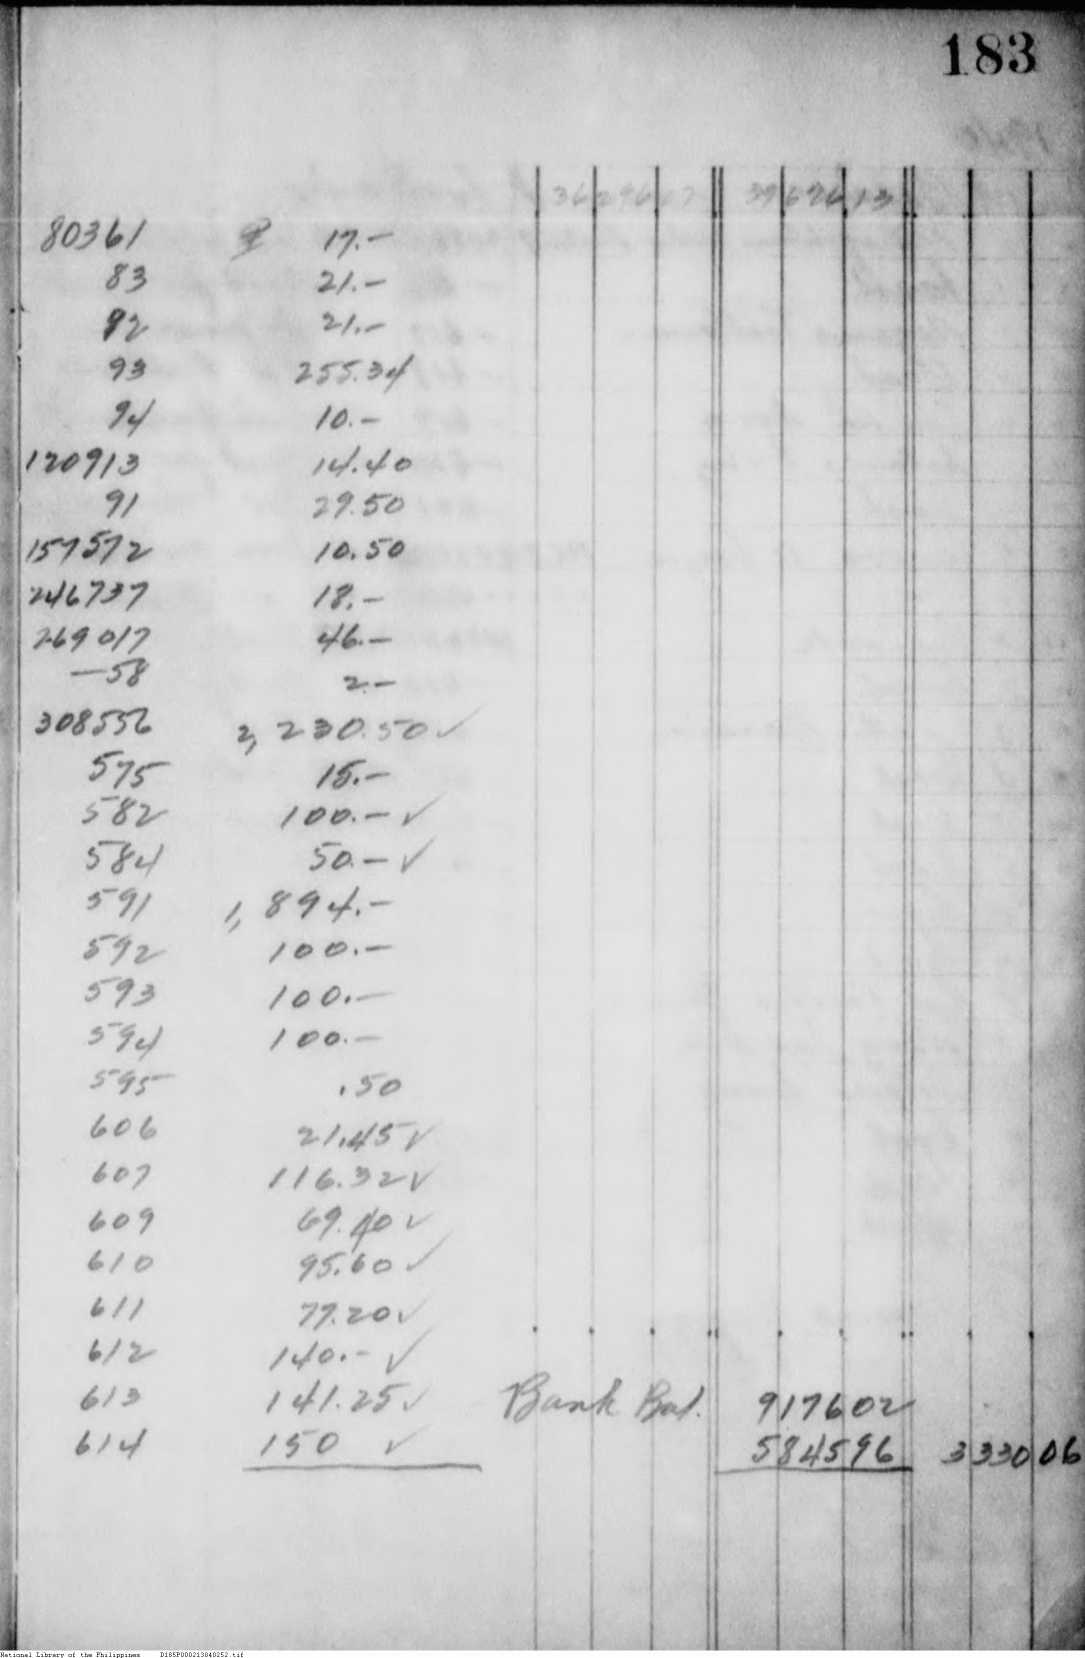 183
80361 ₱ 17.—
83 21.—
92 21.—
93 255.34
94 10.—
120913 14.40
91 29.50
157572 10.50
246737 18.—
269017 46.—
—58 2.—
308556 2,230.50 ✓
575 15.—
582 100.— ✓
584 50.— ✓
591 1,894.—
592 100.—
593 100.—
594 100.—
595 .50
606 21.45 ✓
607 116.32 ✓
609 69.40 ✓
610 95.60 ✓
611 77.20 ✓
612 140.— ✓
613 141.25 ✓ Bank Bal. 917602
614 150 ✓ 584596 333006
National Library of the Philippines D185P000213840252.tif